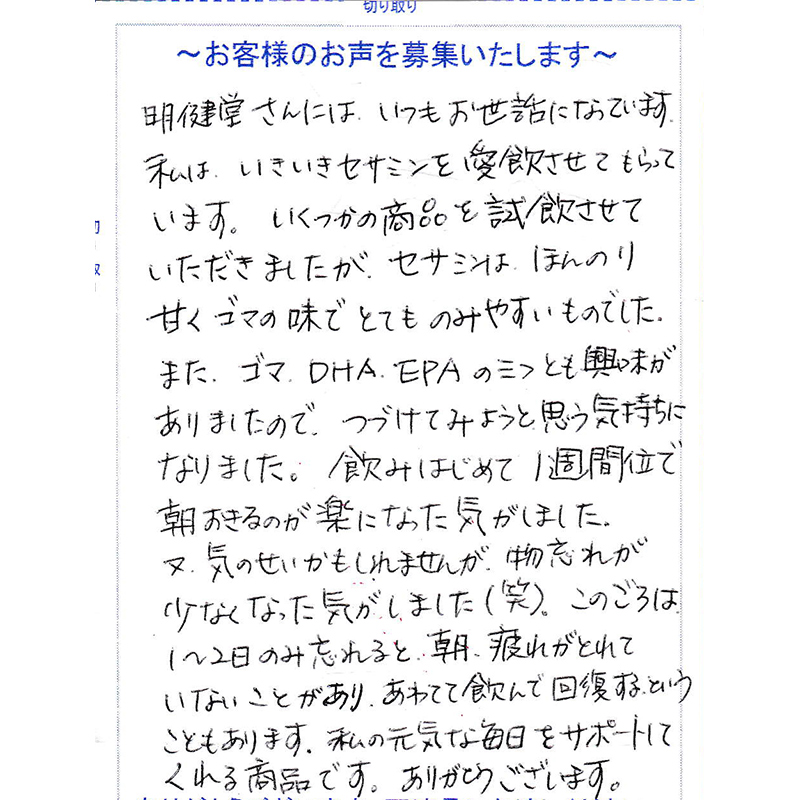 切り取り
～お客様のお声を募集いたします～
明健堂さんには、いつもお世話になっています。
私は、いきいきセサミンを愛飲させてもらって
います。いくつかの商品を試飲させて
いただきましたが、セサミンは、ほんのり
甘くゴマの味でとてものみやすいものでした。
また、ゴマ、DHA、EPAの三つとも興味が
ありましたので、つづけてみようと思う気持ちに
なりました。飲みはじめて1週間位で
朝おきるのが楽になった気がしました。
又、気のせいかもしれませんが、物忘れが
少なくなった気がしました(笑)。このごろは、
1～2日のみ忘れると、朝、疲れがとれて
いないことがあり、あわてて飲んで回復する、という
こともあります。私の元気な毎日をサポートして
くれる商品です。ありがとうございます。